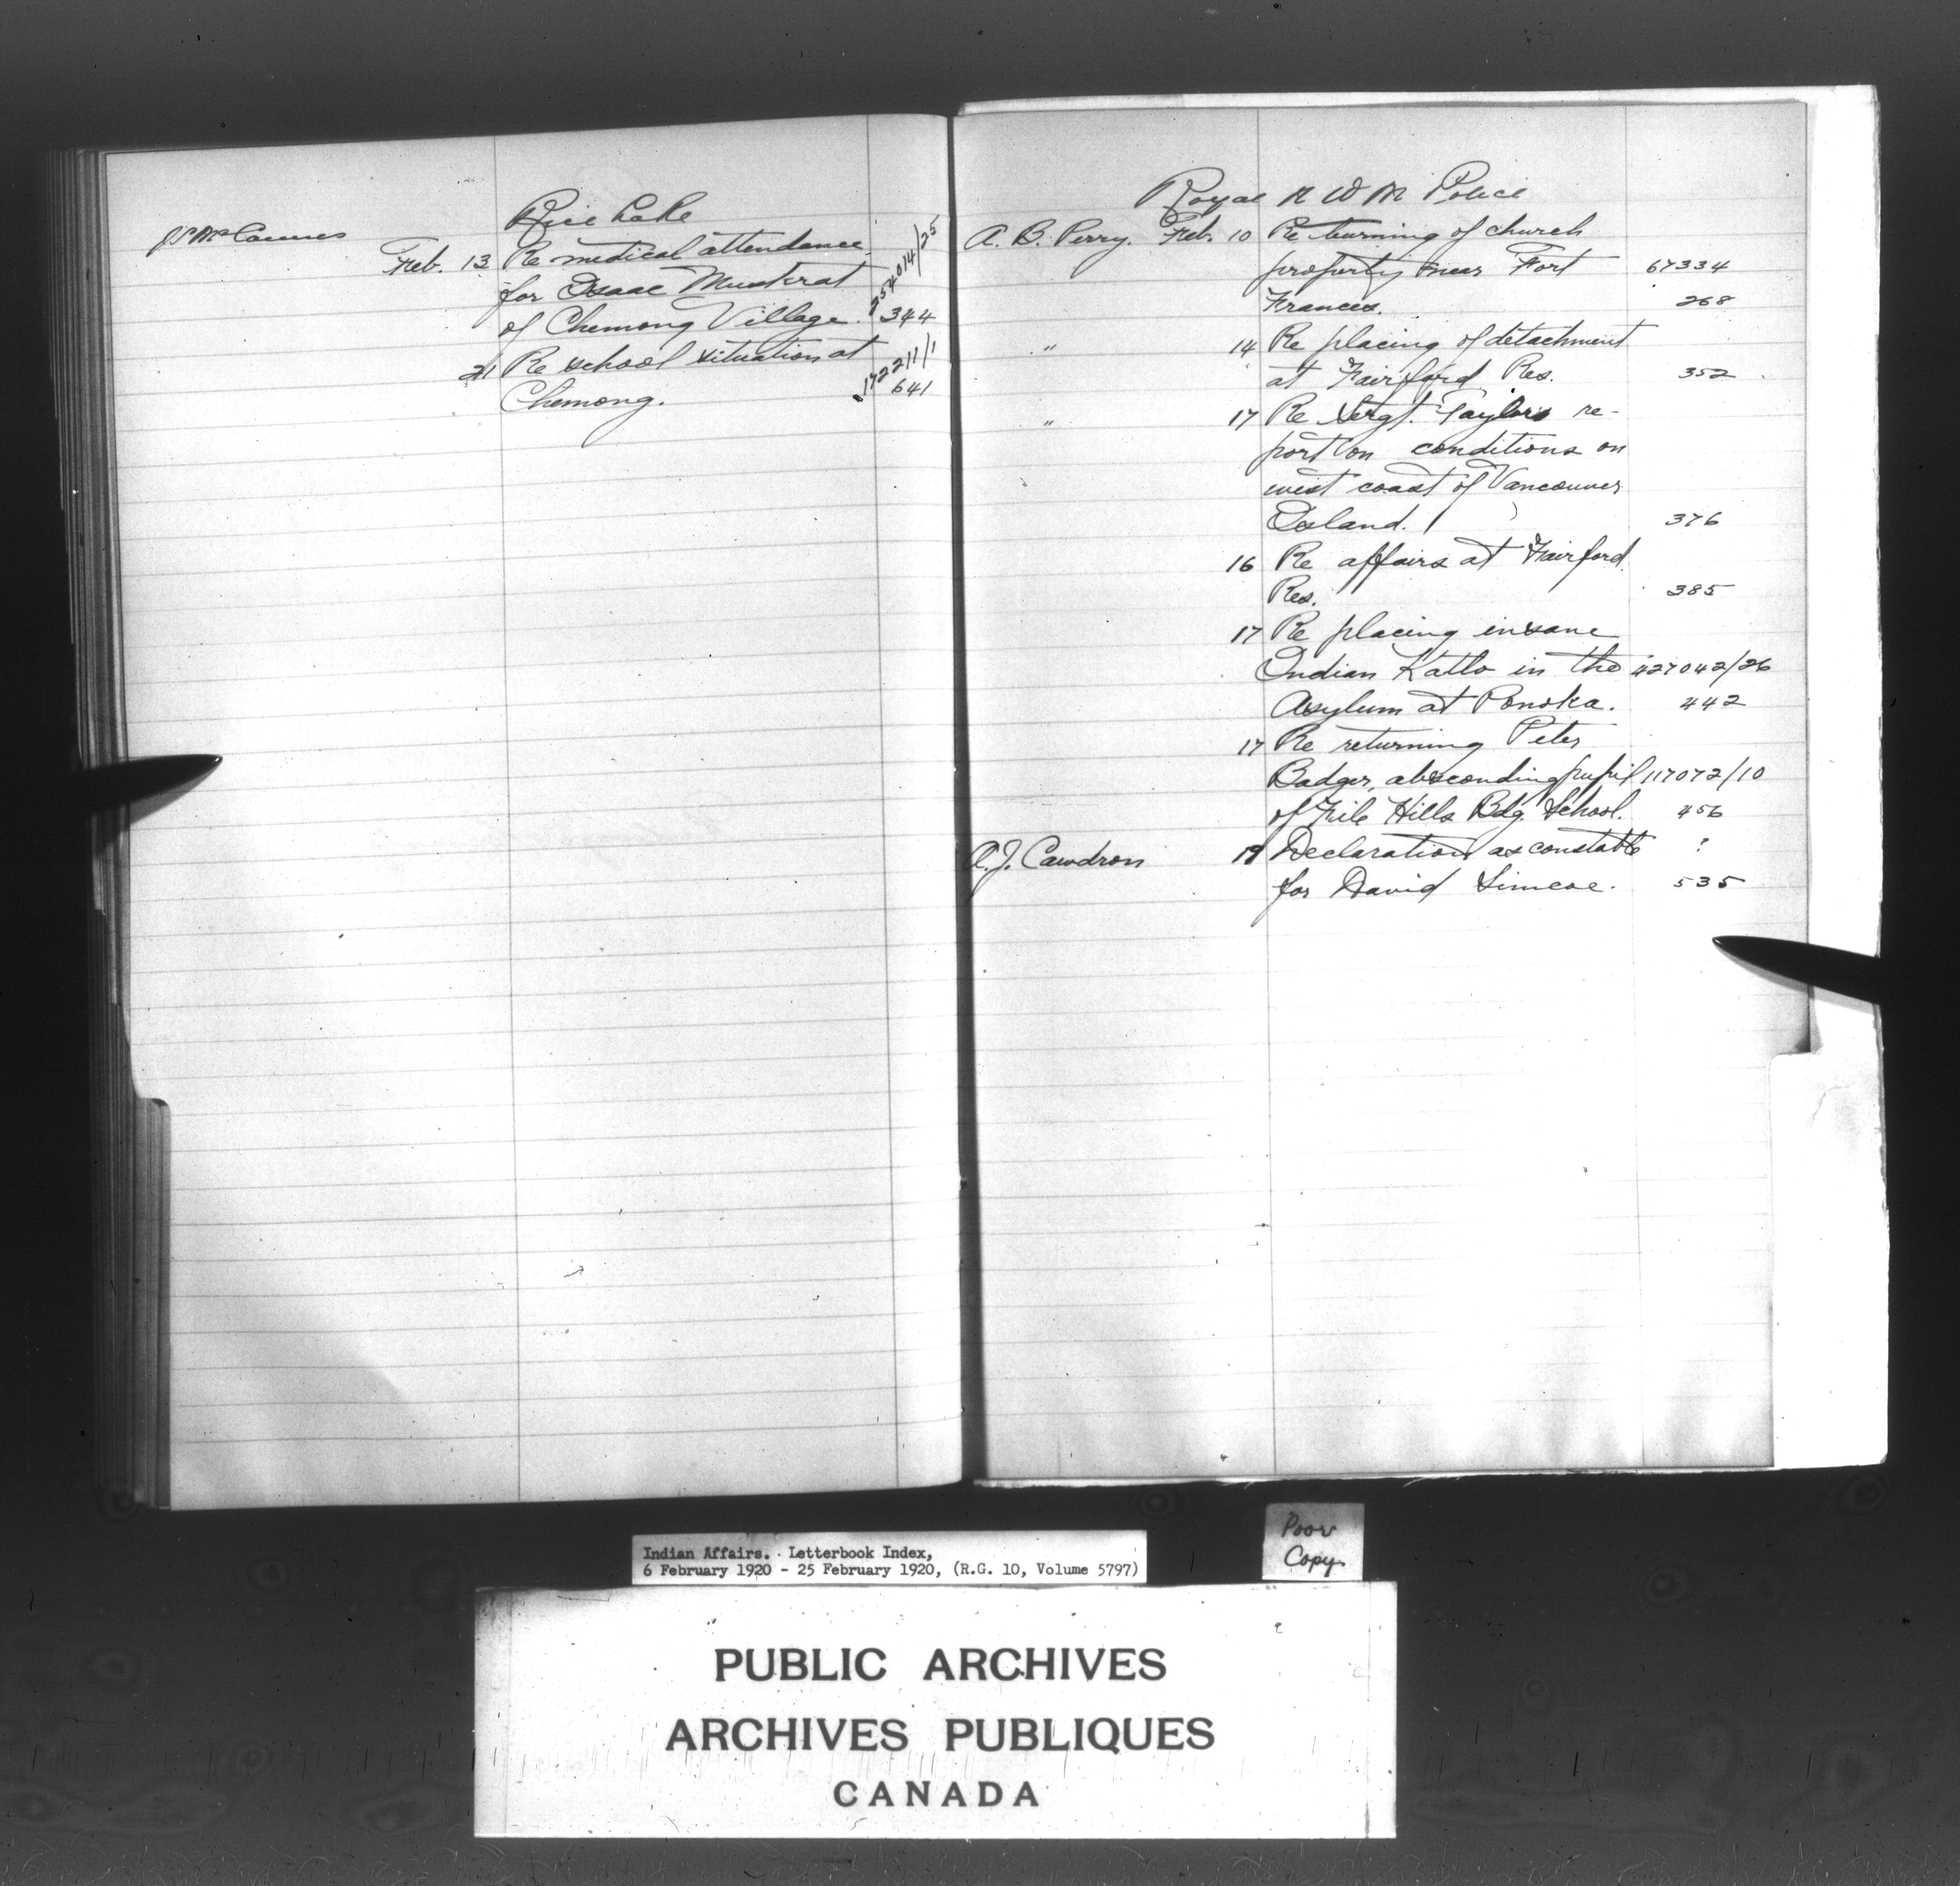 Rice Lake
Feb. 13 Re medical attendance 254014/25
for Isaac Muskrat
of Chemong Village. 344
21 Re school situation at 172211/1
Chemong. 641
Royal N W M Police
A. B. Perry. Feb. 10 Re burning of church
property near Fort 67334
Frances. 268
" 14 Re placing of detachment
at Fairford Res. 352
" 17 Re Sergt. Taylors re-
port on conditions on
west coast of Vancouver
Island. 376
16 Re affairs at Fairford
Res. 385
17 Re placing insane
Indian Katlo in the 427042/26
Asylum at Ponoka. 442
17 Re returning Peter
Badger, absconding pupil 117072/10
of File Hills Bdg. School. 456
A. J. Cawdron 19 Declaration as constable ?
for David Simcoe. 535
Poor
Copy.
Indian Affairs. Letterbook Index,
6 February 1920 - 25 February 1920, (R.G. 10, Volume 5797)
PUBLIC ARCHIVES
ARCHIVES PUBLIQUES
CANADA